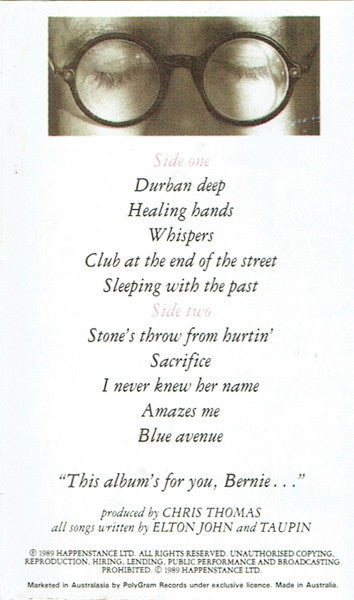 Side one
Durban deep
Healing hands
Whispers
Club at the end of the street
Sleeping with the past
Side two
Stone's throw from hurtin'
Sacrifice
I never knew her name
Amazes me
Blue avenue
"This album's for you, Bernie . . ."
produced by CHRIS THOMAS
all songs written by ELTON JOHN and TAUPIN
℗ 1989 HAPPENSTANCE LTD. ALL RIGHTS RESERVED. UNAUTHORISED COPYING,
REPRODUCTION, HIRING, LENDING, PUBLIC PERFORMANCE AND BROADCASTING
PROHIBITED. © 1989 HAPPENSTANCE LTD.
Marketed in Australasia by PolyGram Records under exclusive licence. Made in Australia.